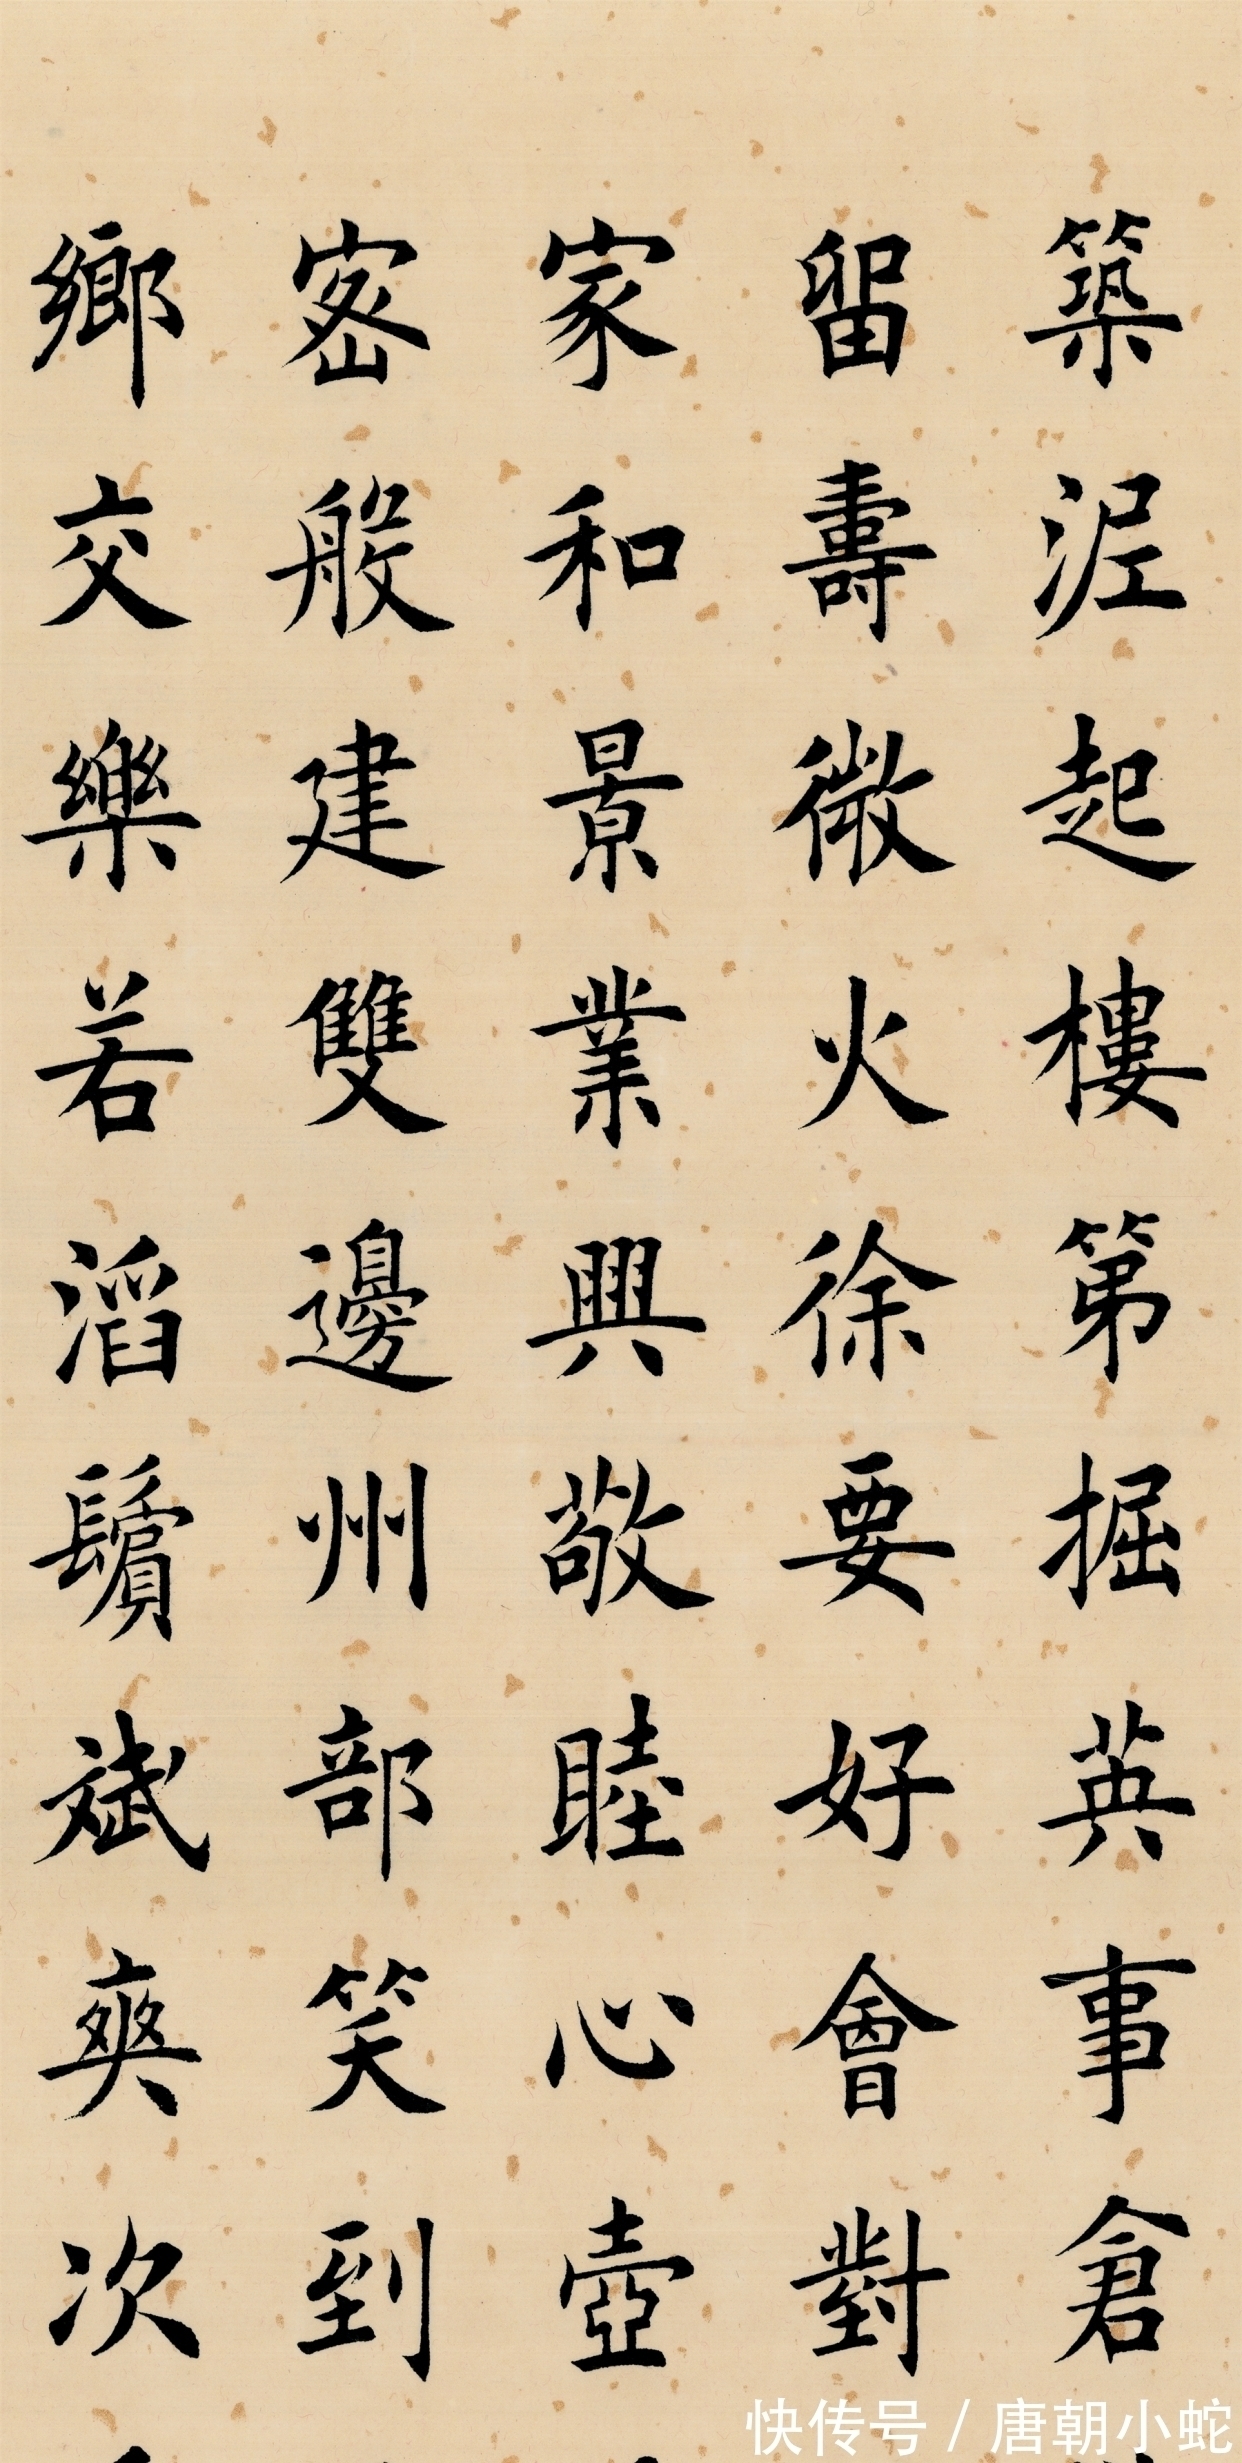 築泥起樓第掘英事倉
留壽微火徐要好會對
家和景業興敬睦心壺
密般建雙邊州部笑到
鄉交樂若滔鬢斌爽次
快传号 / 唐朝小蛇